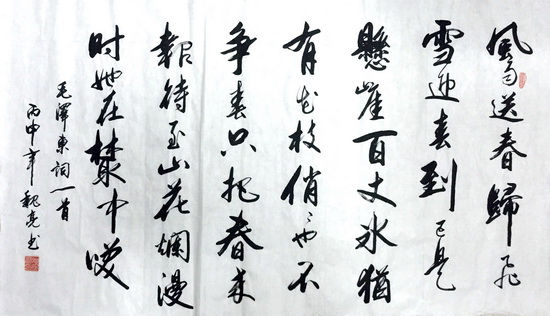 風雨送春歸飛
雪迎春到已是
懸崖百丈冰猶
有花枝俏〻也不
争春只把春来
報待到山花爛漫
时她在叢中笑
毛澤東詞一首
丙申年魏亮书